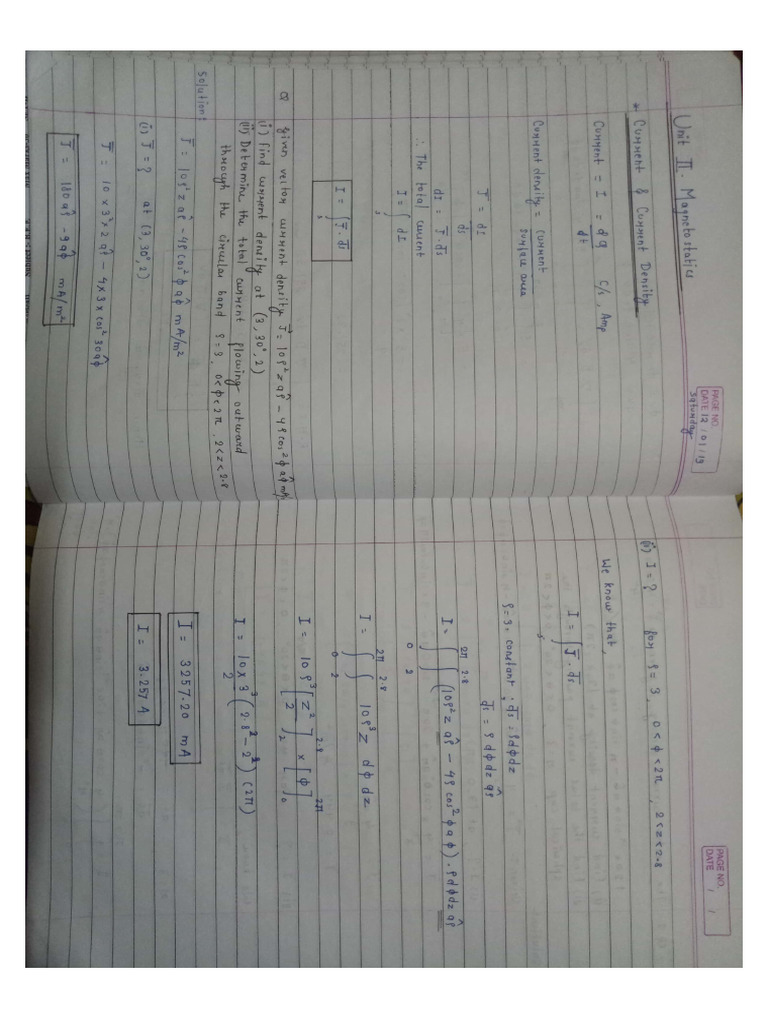 PAGE NO.
DATE 12 / 01 / 19
Saturday
Unit II. Magnetostatics
* Current & Current Density
Current = I = dq/dt C/s, Amp
Current density = current/surface area
J̅ = dI/ds
dI = J̅ . ds̅
∴ The total current
I = ∫s dI
I = ∫s J̅ . ds̅
Q given vector current density J̅ = 10ρ²z aρ̂ - 4ρcos²φ aφ̂ mA/
(i) find current density at (3, 30°, 2)
(ii) Determine the total current flowing outward
through the circular band ρ=3, 0<φ<2π, 2<z<2.8
Solution:
J̅ = 10ρ²z aρ̂ - 4ρcos²φ aφ̂ mA/m²
(i) J̅ = ? at (3, 30°, 2)
J̅ = 10 x 3² x 2 aρ̂ - 4x3x cos² 30 aφ̂
J̅ = 180 aρ̂ - 9aφ̂ mA/m²
PAGE NO.
DATE / /
(ii) I = ? for ρ = 3, 0<φ<2π, 2<z<2.8
We know that,
I = ∫s J̅ . ds̅
ρ=3, constant ; ds̅ = ρdφdz
ds̅ = ρ dφ dz aρ̂
I = ∫0^2π ∫2^2.8 (10ρ²z aρ̂ - 4ρ cos²φ aφ̂) . ρdφdz aρ̂
I = ∫0^2π ∫2^2.8 10ρ³z dφ dz
I = 10ρ³ [z²/2]2^2.8 x [φ]0^2π
I = 10x3³/2 (2.8² - 2²) (2π)
I = 3257.20 mA
I = 3.257 A